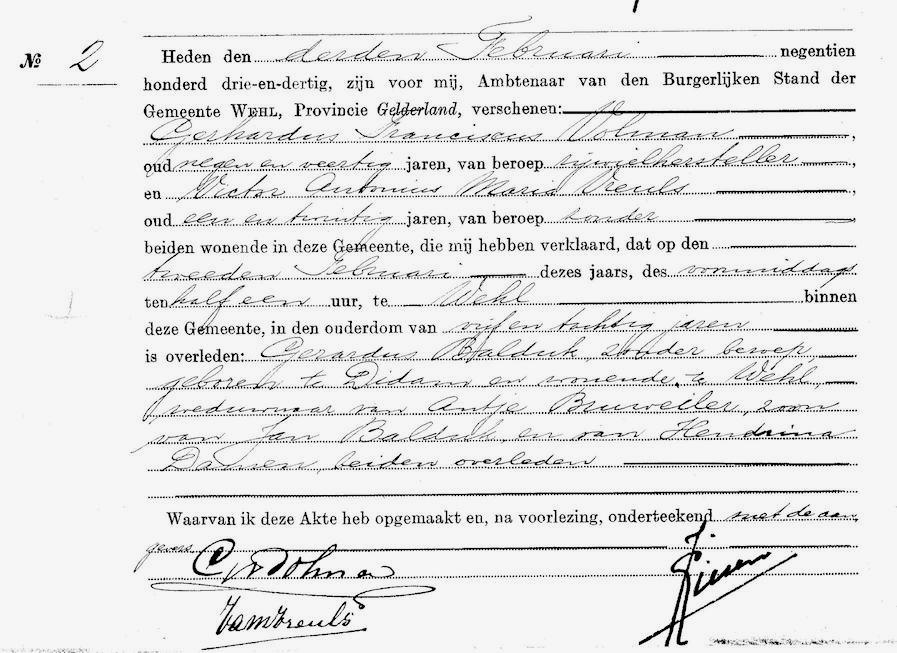 № 2
Heden den derden Februari negentien
honderd drie-en-dertig, zijn voor mij, Ambtenaar van den Burgerlijken Stand der
Gemeente WEHL, Provincie Gelderland, verschenen:
Gerhardus Franciscus Volman,
oud negen en veertig jaren, van beroep rijwielhersteller,
en Victor Antonius Maria Vreuls,
oud een en twintig jaren, van beroep zonder,
beiden wonende in deze Gemeente, die mij hebben verklaard, dat op den
tweeden Februari dezes jaars, des voormiddags
ten half een uur, te Wehl binnen
deze Gemeente, in den ouderdom van vijf en tachtig jaren
is overleden: Gerardus Balduk, zonder beroep,
geboren te Didam en wonende te Wehl,
weduwnaar van Antje Bruweiler, zoon
van Jan Balduk, en van Hendrina
Damen, beiden overleden
Waarvan ik deze Akte heb opgemaakt en, na voorlezing, onderteekend met de aan,
gevers